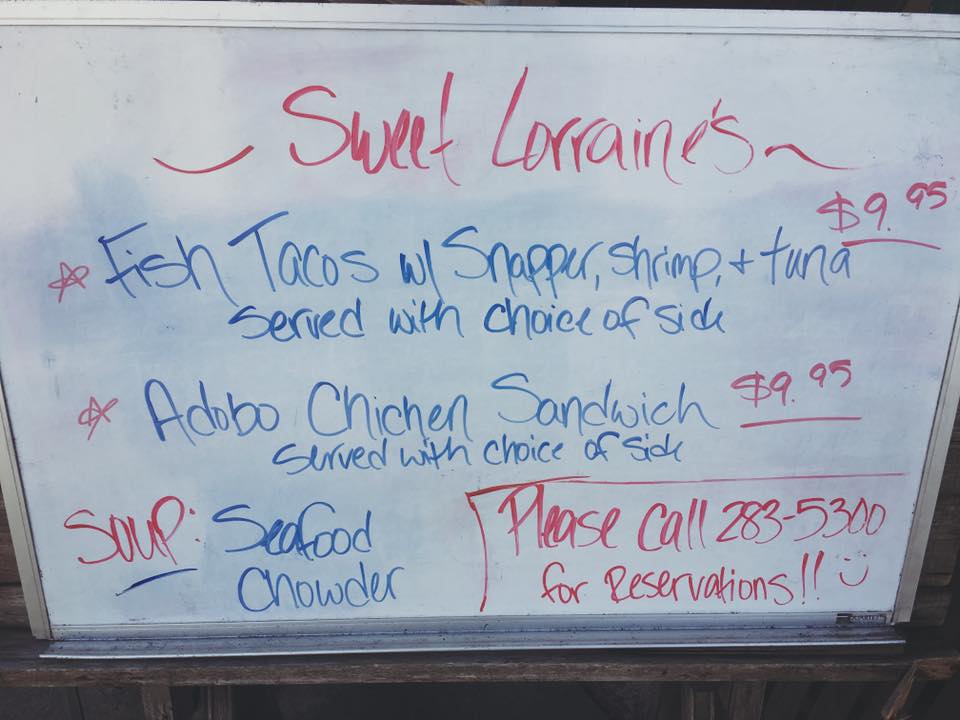 Sweet Lorraine's
$9.95
Fish Tacos w/ Snapper, shrimp, + tuna
Served with choice of side
Adobo Chicken Sandwich $9.95
served with choice of side
Soup: Seafood
Chowder
Please Call 283-5300
for Reservations!!